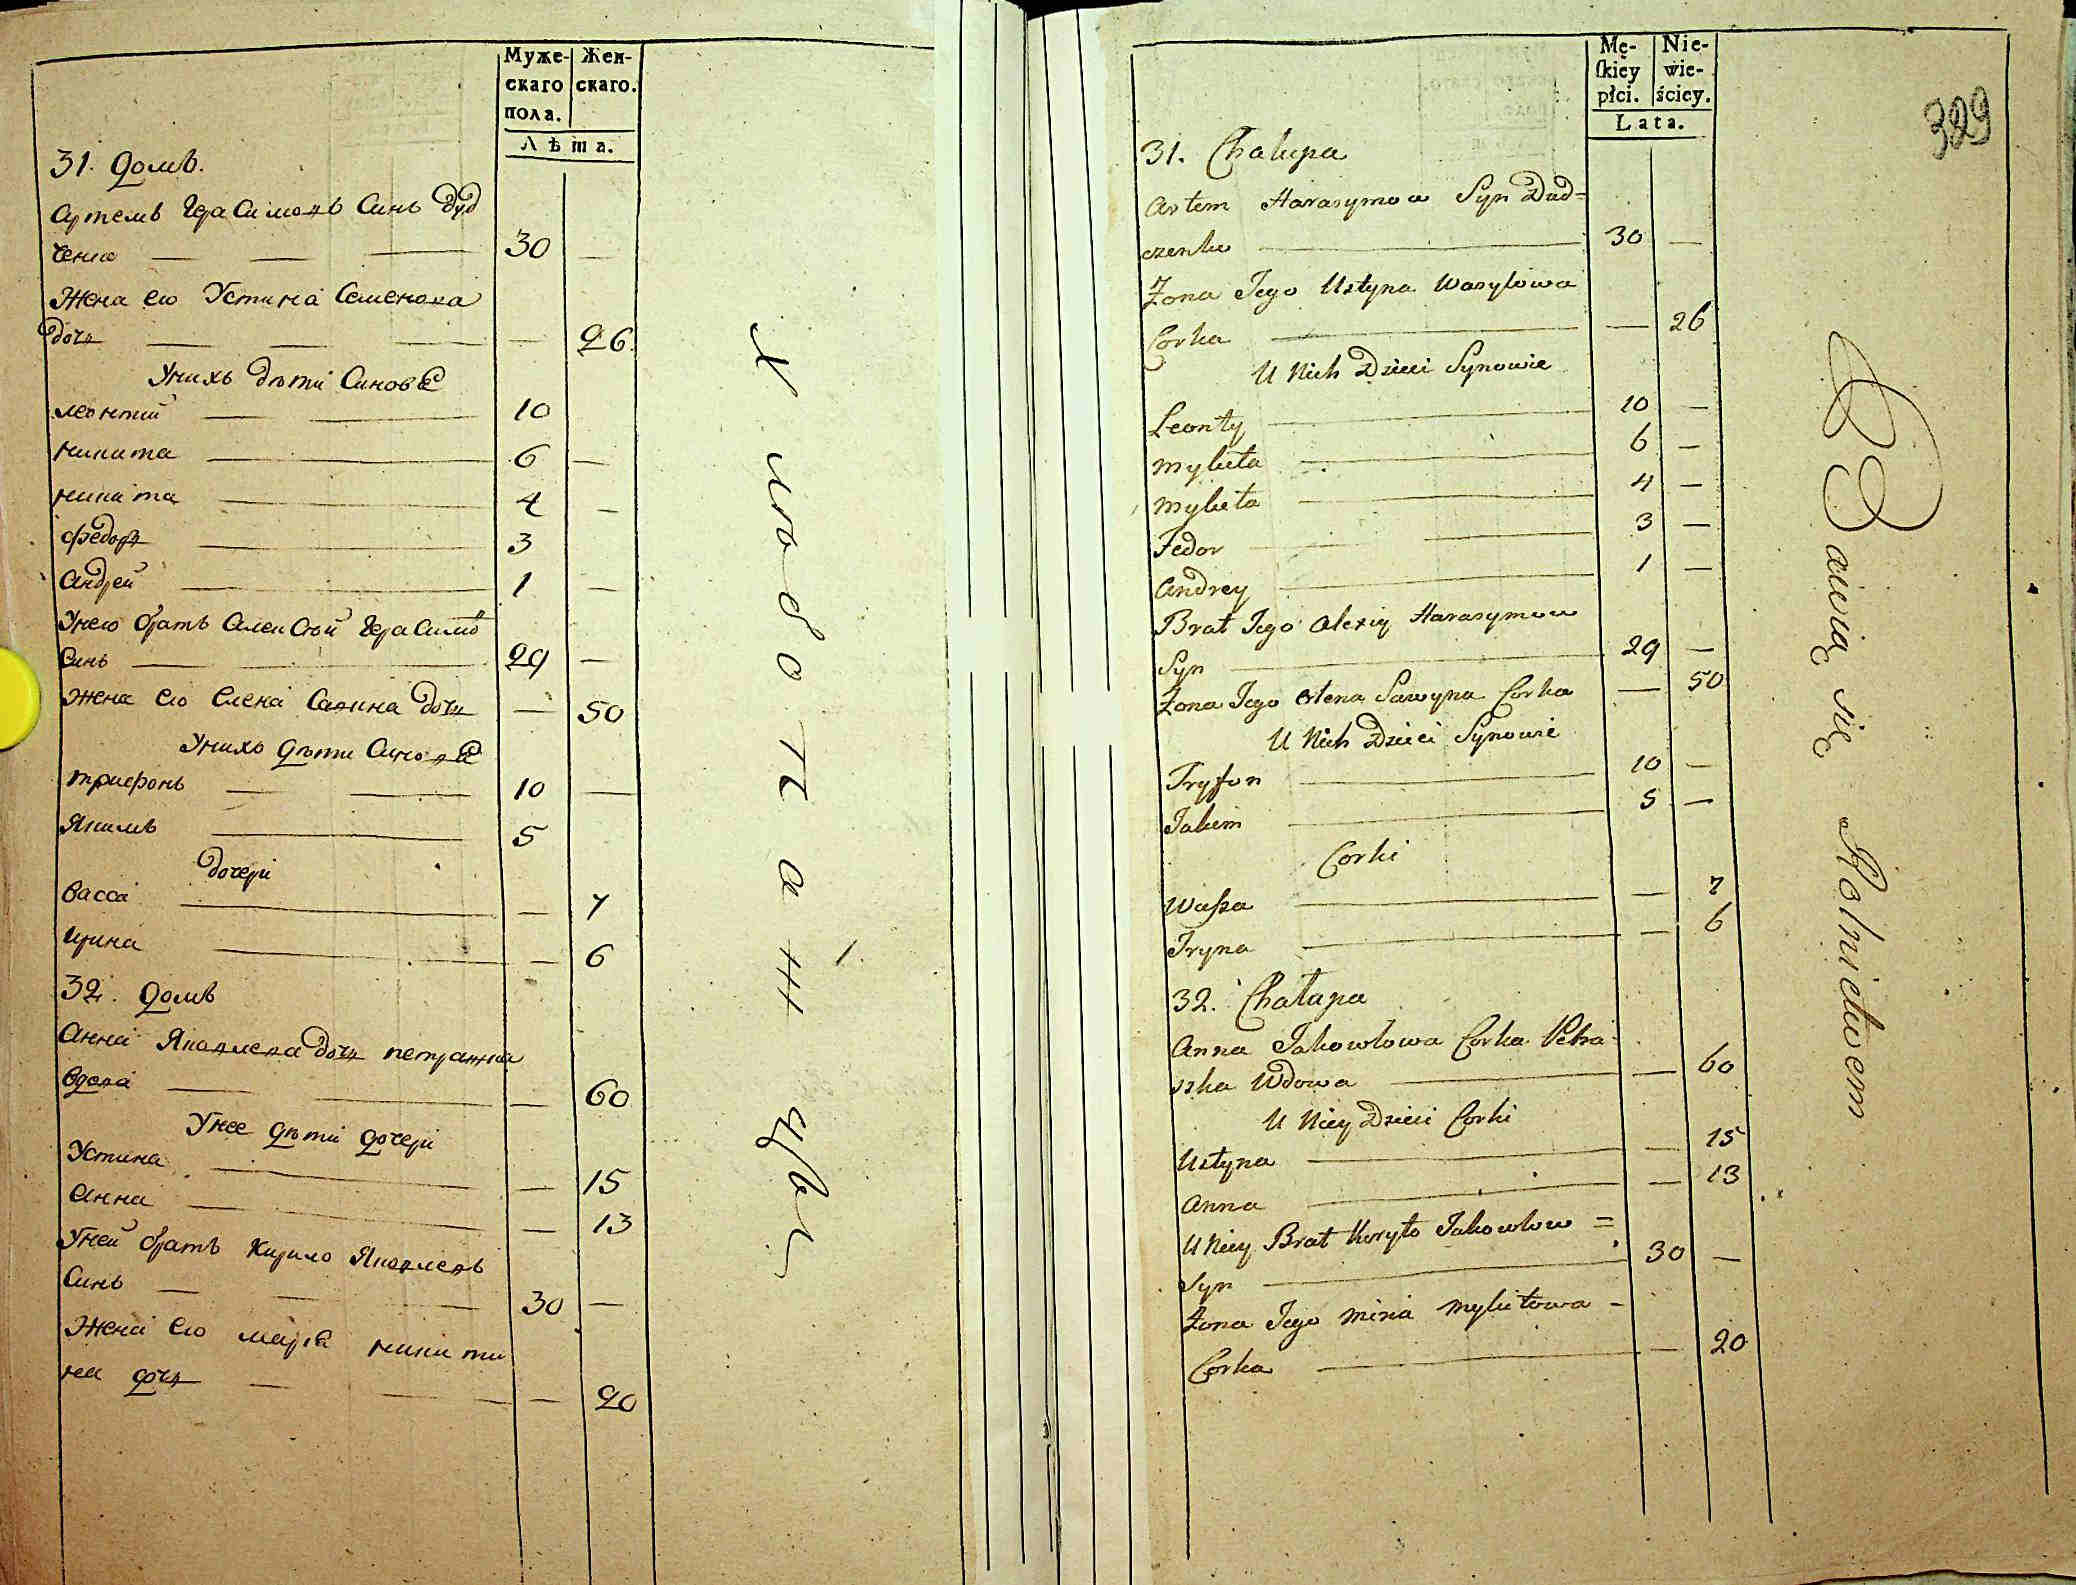 Муже-
скаго
пола.
Жен-
скаго.
Лѣта.
31. домъ.
Артемъ Герасимовъ Синъ Дуд
ченко 30 —
Жена его Устина Семенова
дочь — 26
Унихъ дѣти Синовѣ
Леонтий 10
Никита 6 —
Никита 4 —
Федоръ 3
Андрей 1 —
Унего братъ Алексѣй Герасимо
Синъ 29 —
Жена его Елена Савина дочь — 50
Унихъ дѣти Синовѣ
Трифонъ 10 —
Якимъ 5
дочері
Васса — 7
Ирина — 6
32. домъ
Анна Яковлева дочь
вдова — 60
Унее дѣти дочері
Устина — 15
Анна — 13
Уней братъ Кирило Яковлевъ
Синъ 30 —
Жена его Марія Никити
на дочь — 20
Хлѣбопашцы
329
Mę-
skiey
płci.
Nie-
wie-
ściey.
Lata.
31. Chalupa
Artem Harasymow Syn Dud=
czenko 30 —
Żona Jego Ustyna Wasylowa
Corka — 26
U Nich Dzieci Synowie
Leonty 10 —
Mykita 6 —
Mykita 4 —
Fedor 3 —
Andrey 1 —
Brat Jego Alexiy Harasymow
Syn 29 —
Żona Jego Olena Sawyna Corka — 50
U Nich Dzieci Synowie
Tryfon 10 —
Jakim 5 —
Corki
Wassa — 7
Iryna — 6
32. Chałupa
Anna Jakowłowa Corka Petra-
szka Wdowa — 60
U Niey Dzieci Corki
Ustyna — 15
Anna — 13
U Niey Brat Kuryło Jakowłow =
Syn 30 —
Żona Jego Mykitowa -
Corka — 20
Bawią się Rolnictwem